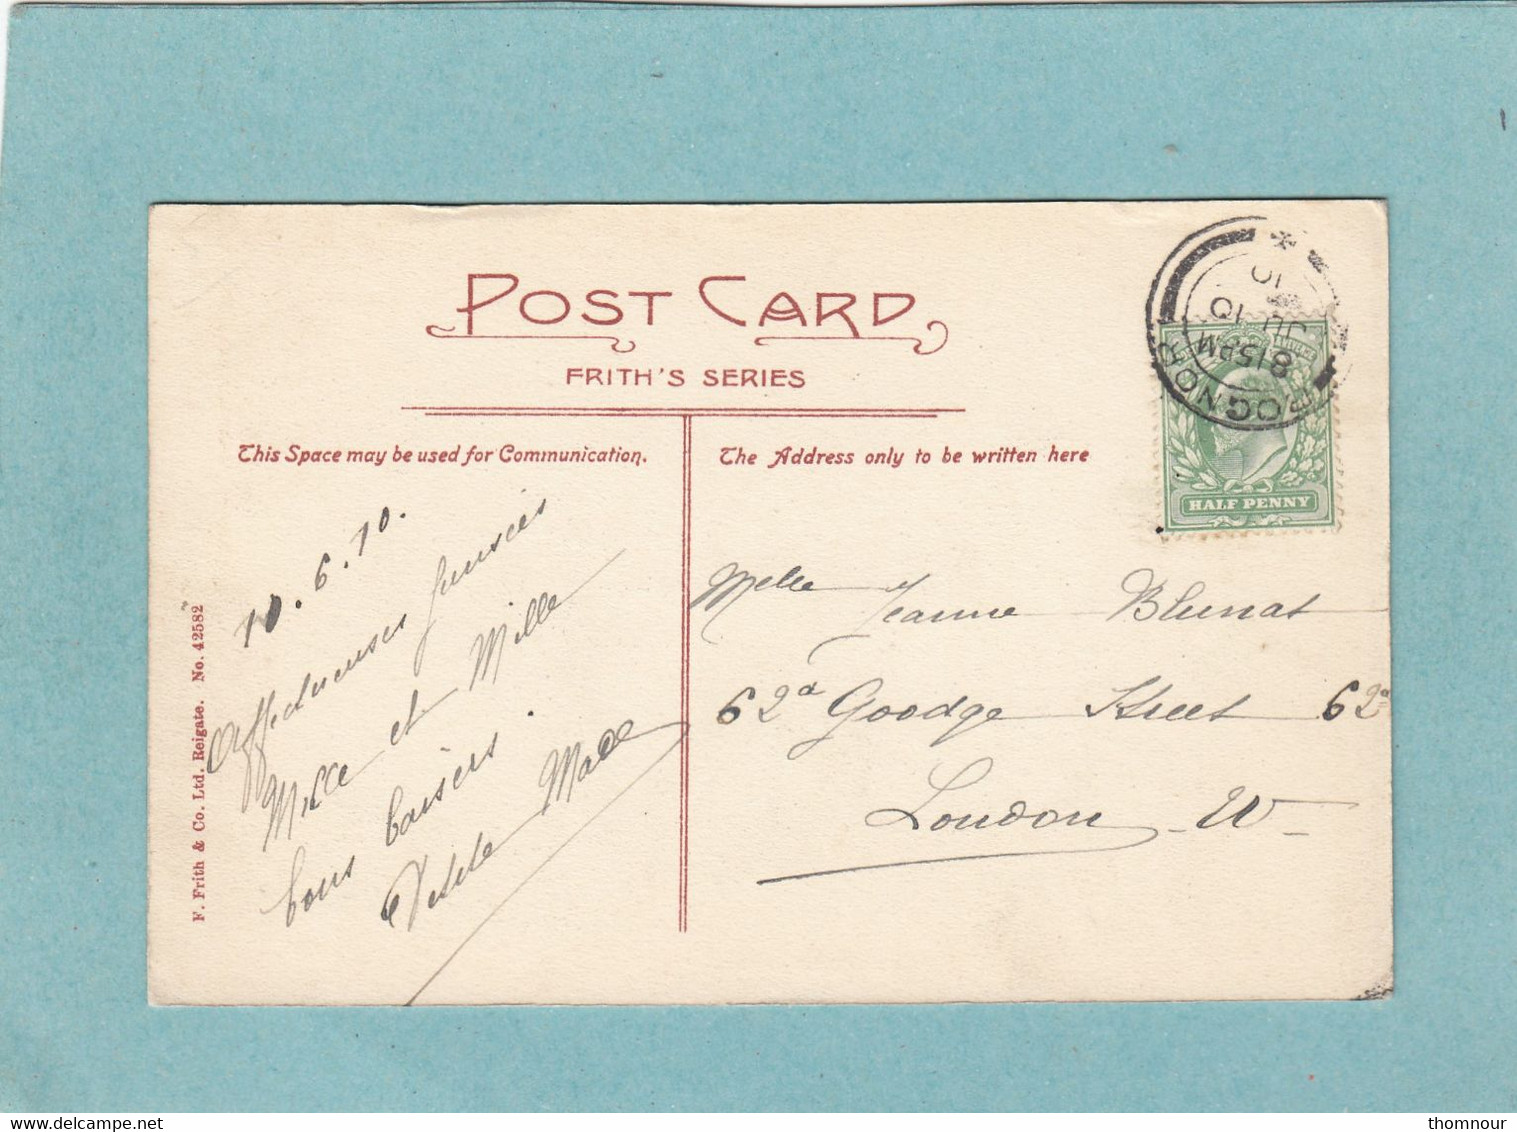 POST CARD
FRITH'S SERIES
This Space may be used for Communication.
The Address only to be written here
10.6.10.
Affectueuses pensées
Mlle et Mille
bons baisers.
Petite Made
F. Frith & Co. Ltd. Reigate. No. 42582
BOGNOR
815PM
JU 10
10
HALF PENNY
Melle Jeanne Blunat
62a Goodge Street 62a
London W
thomnour